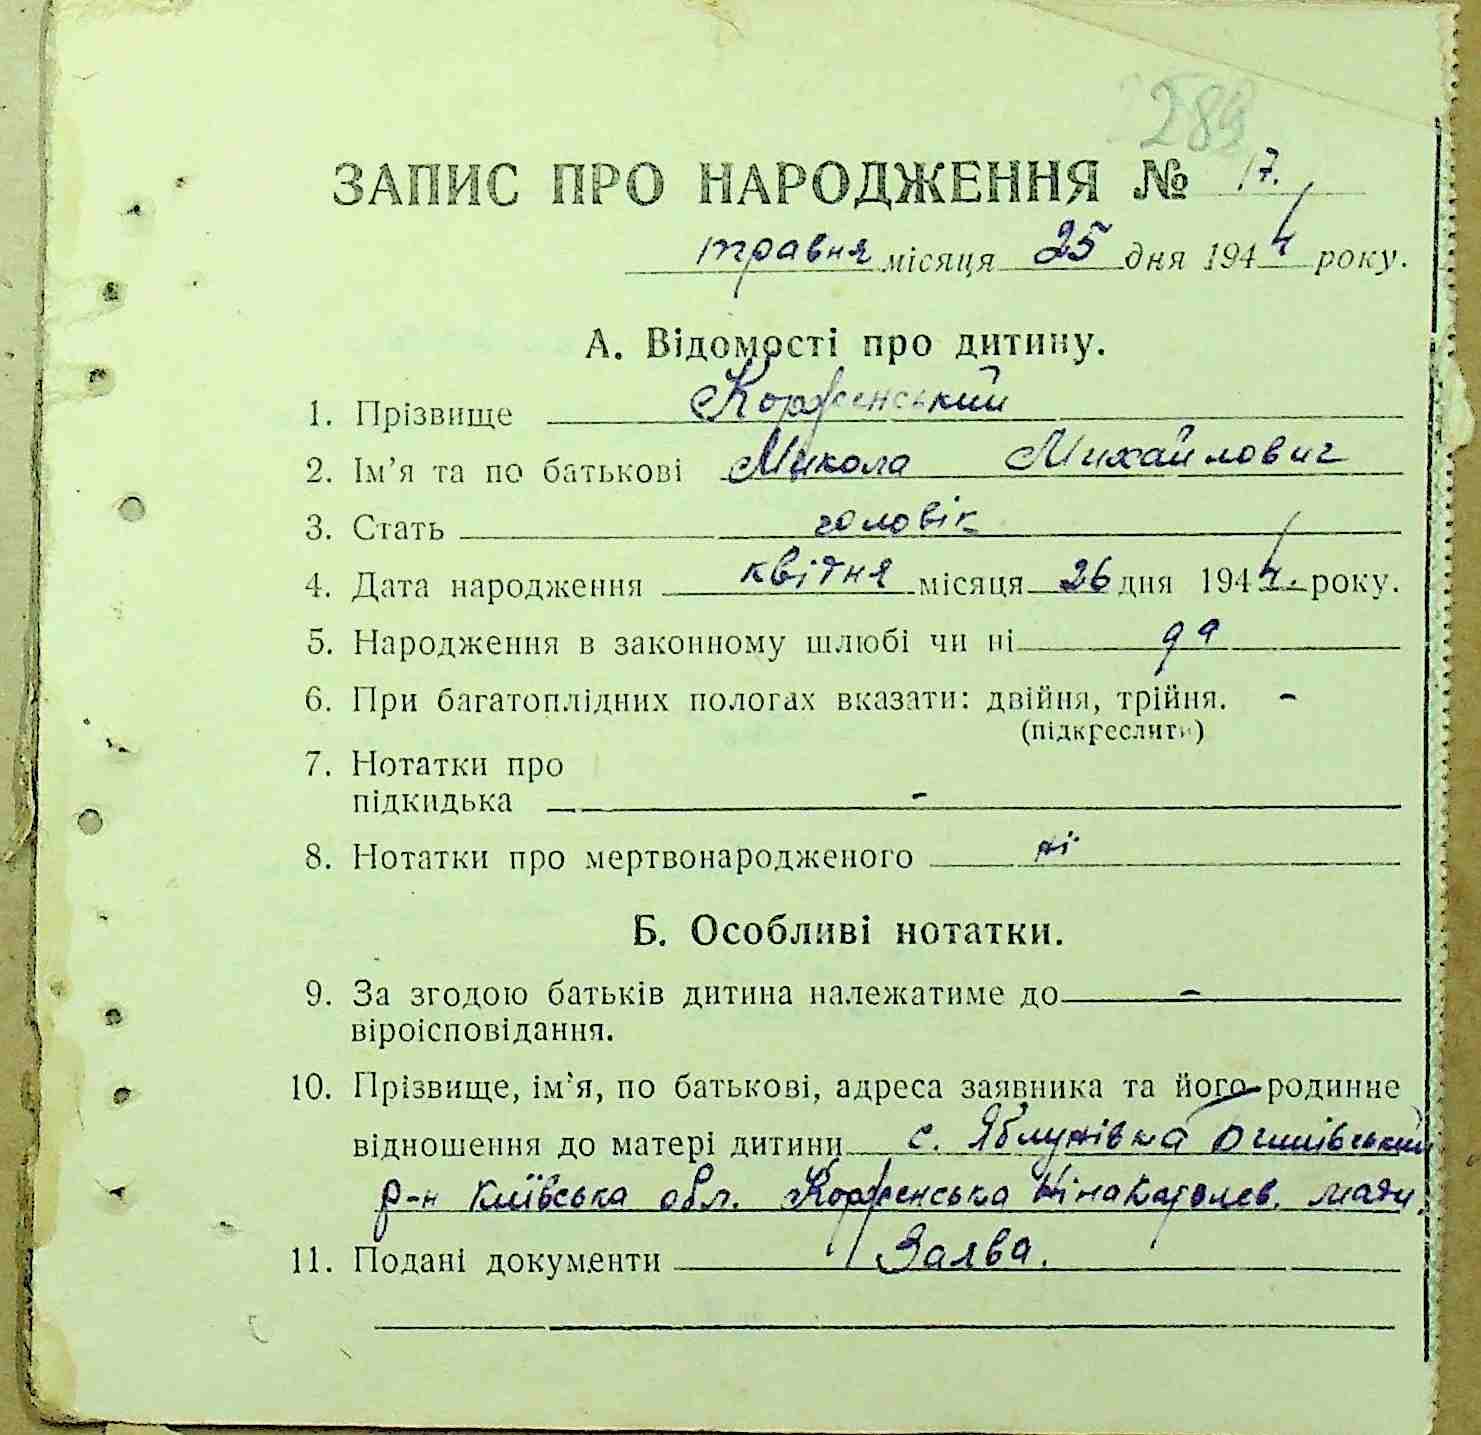 283
ЗАПИС ПРО НАРОДЖЕННЯ № 17.
травня місяця 25 дня 1944 року.
А. Відомості про дитину.
1. Прізвище Корженський
2. Ім'я та по батькові Микола Михайлович
3. Стать чоловік
4. Дата народження квітня місяця 26 дня 1944. року.
5. Народження в законному шлюбі чи ні да
6. При багатоплідних пологах вказати: двійня, трійня. -
(підкреслити)
7. Нотатки про
підкидька -
8. Нотатки про мертвонародженого ні
Б. Особливі нотатки.
9. За згодою батьків дитина належатиме до -
віроісповідання.
10. Прізвище, ім'я, по батькові, адреса заявника та його родинне
відношення до матері дитини с. Яблунівка
р-н Київська обл. Корженська Ніна мати.
11. Подані документи Заява.